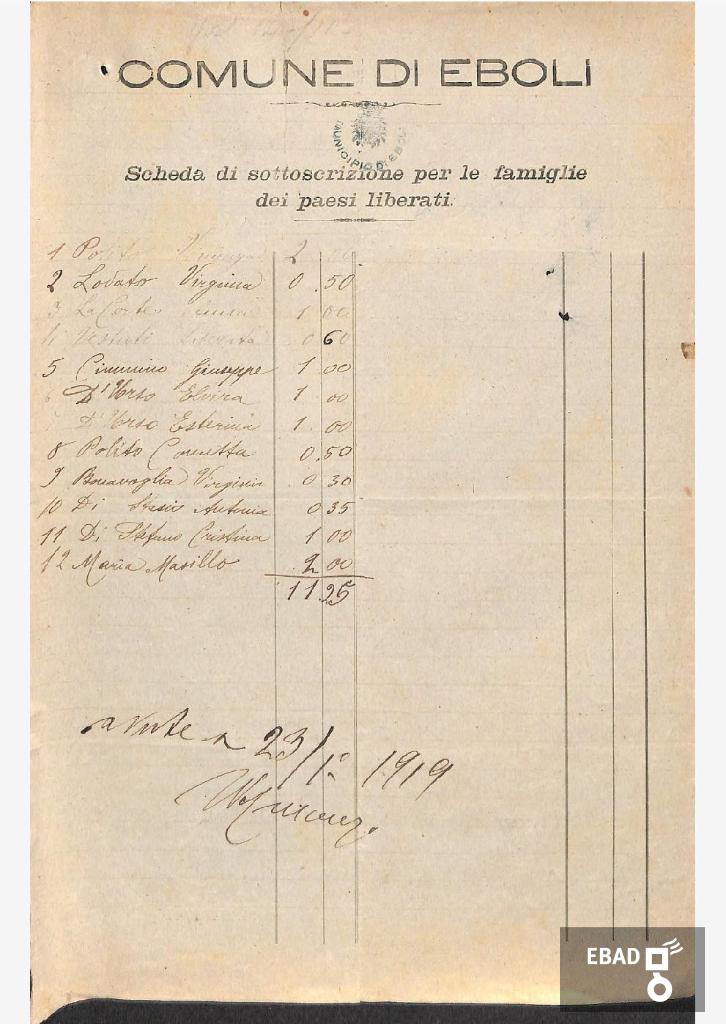 COMUNE DI EBOLI
MUNICIPIO DI EBOLI
Scheda di sottoscrizione per le famiglie
dei paesi liberati.
1 Polito 2 00
2 Lodato Virginia 0.50
3 La Corte 1 00
4 0 60
5 Cimmino Giuseppe 1 00
6 D'Urso Elvira 1 00
D'Urso Esterina 1.00
8 Polito Concetta 0.50
9 Bonavoglia Virginia 0 30
10 Di Antonia 0 35
11 Di Stefano Cristina 1 00
12 Maria Masillo 2 00
11 25
23/1° 1919
EBAD